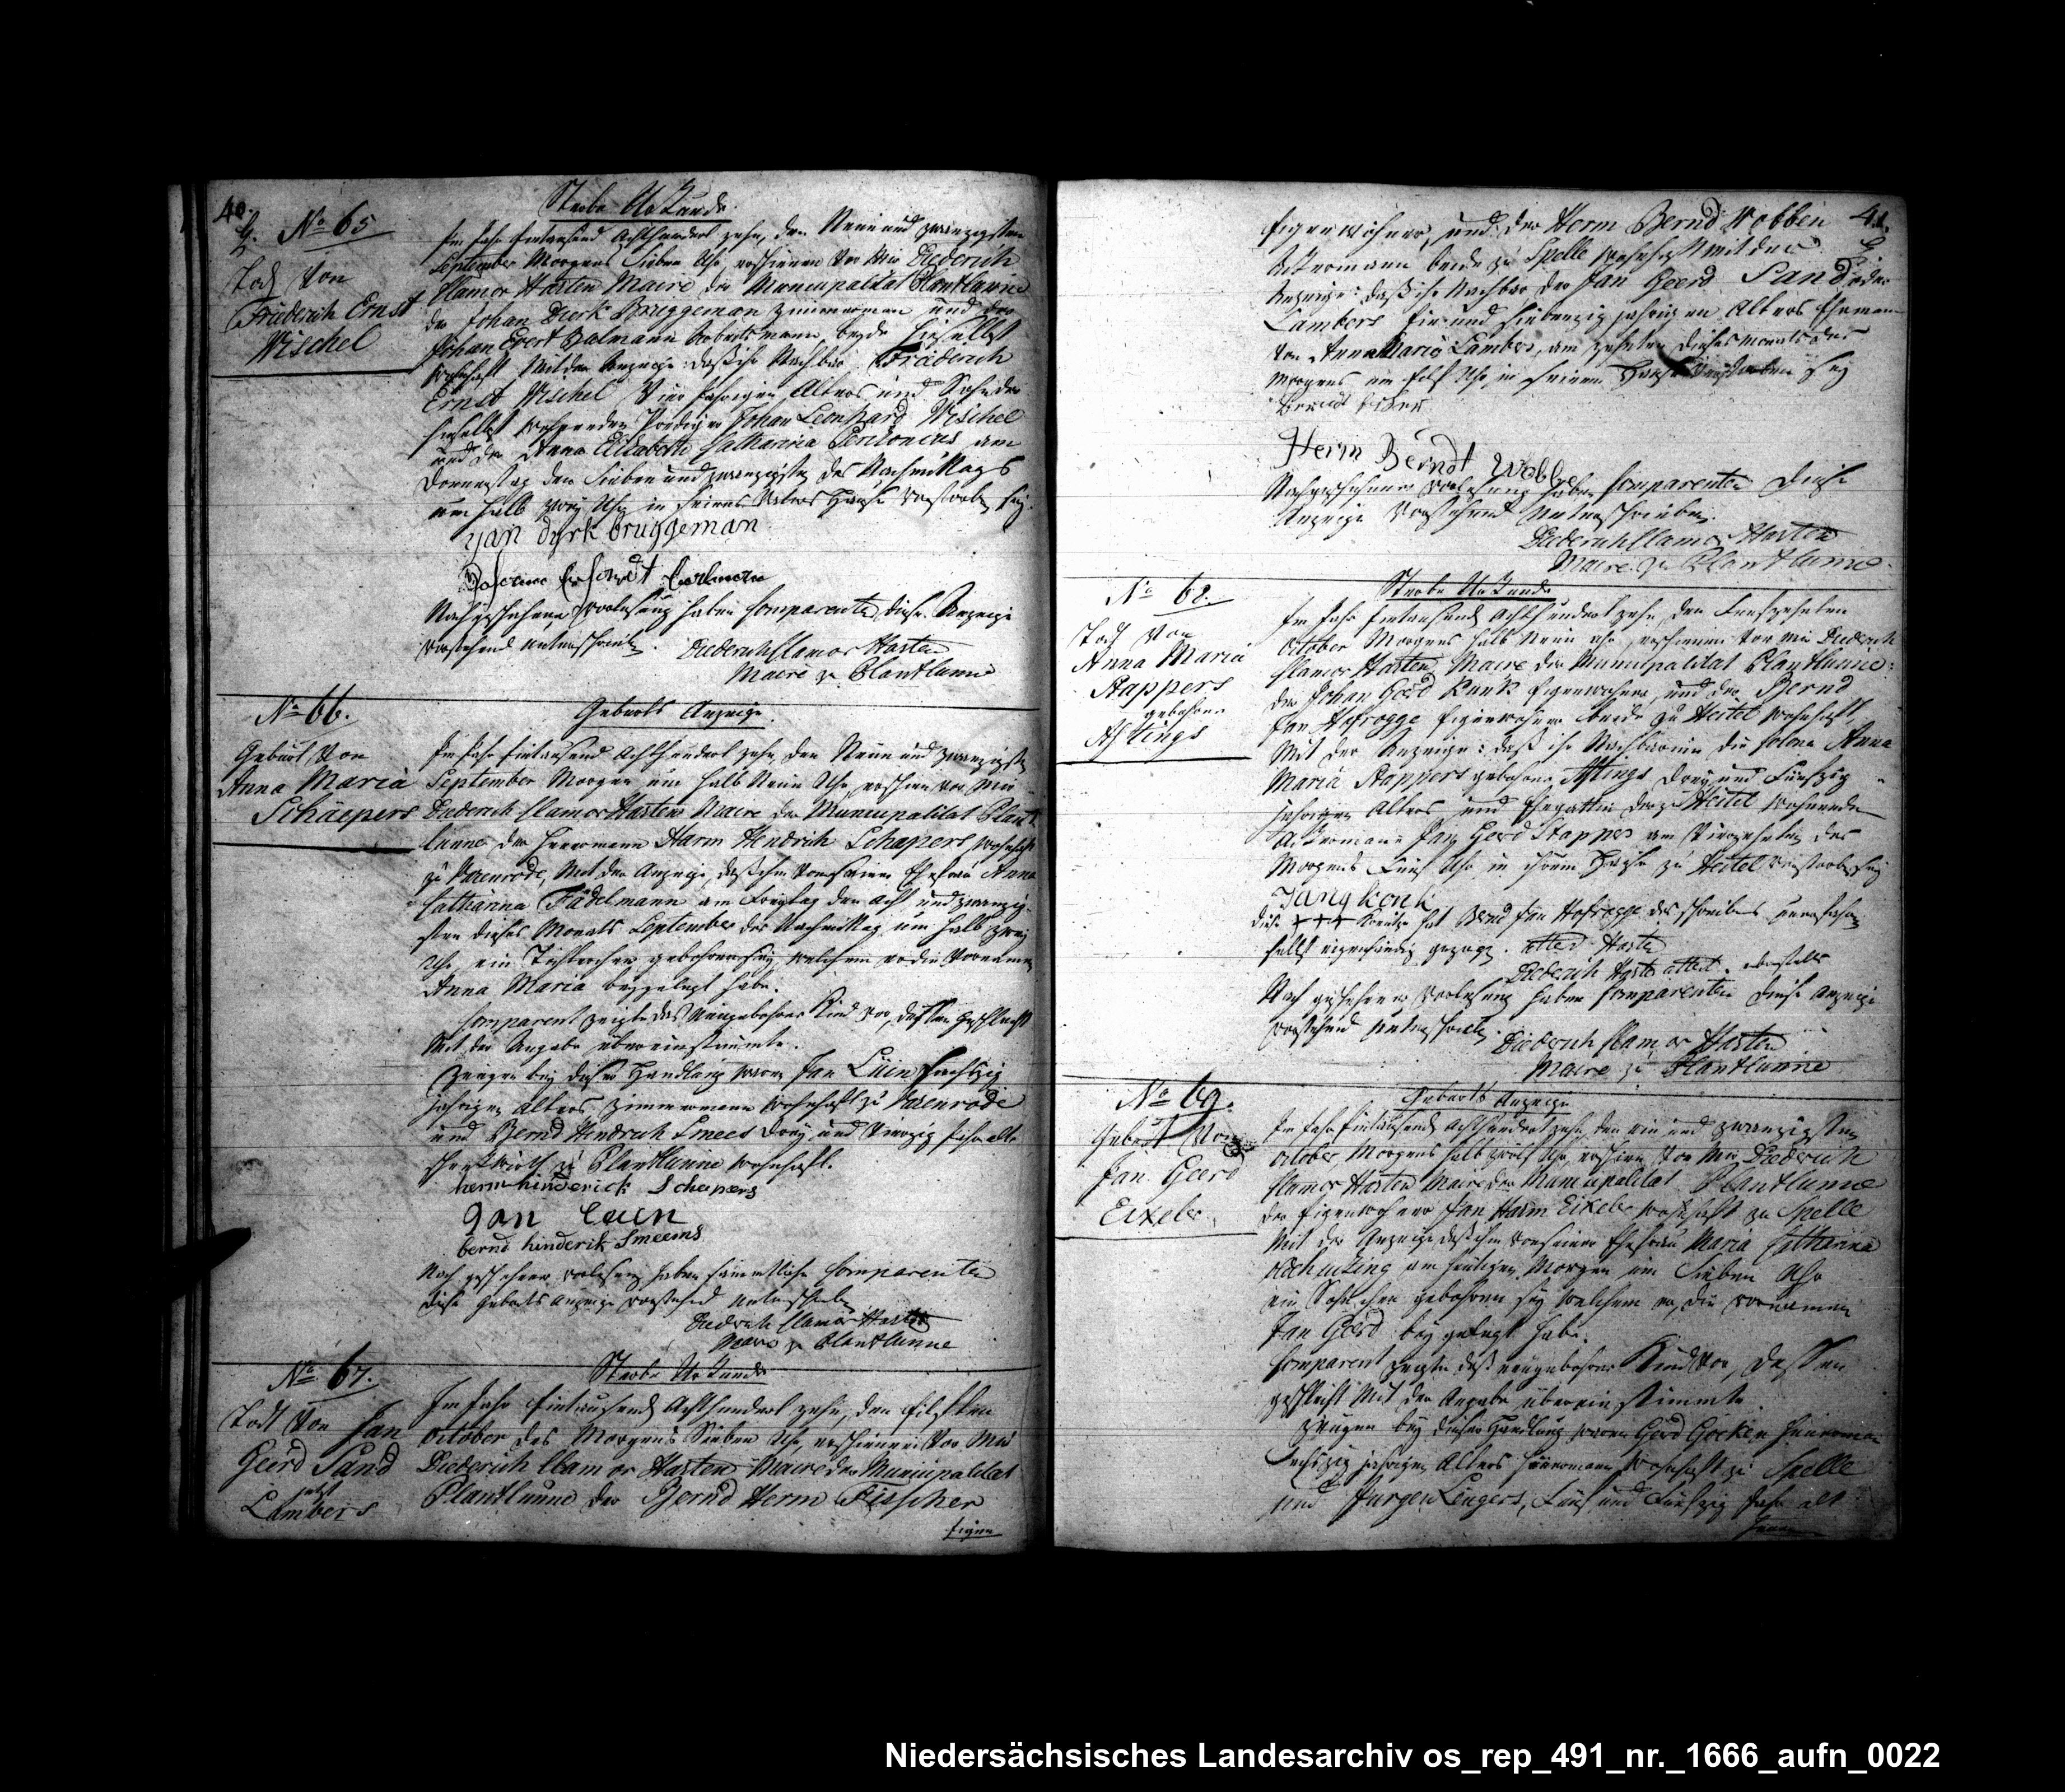 40.
No 65
Tod von
Friederich Ernst
Wischel
Sterbe Urkunde
Im Jahr Eintausend Achthundert zehn, den Neun und zwanzigsten
September Morgens Sieben Uhr erschienen vor Mir Diederich
Clamor Hasten Maire der Municipalitat Plantlünne
der Johan Dierk Bruggeman Zimmerman und der
Johan Evert Arbeitsmann beyde hieselbst
wohnhaft Mit der Anzeige: daß ihr Nachbar Friederich
Ernst Wischel Vier Jahrigen Alters und Sohn des
hieselbst wohnenden Predigers Johan Leonhard Wischel
und der Anna Elisabeth Catharina am
Donnerstag den Sieben und zwanzigsten des Nachmittags
um halb zwey Uhr in seines Vaters Hause verstorben sey.
Jan dyrk bruggeman
Nach geschehener Vorlesung haben Comparenten diese Anzeige
vorstehend unterschrieben. Diederich Clamor Hasten
Maire zu Plantlünne
No 66.
Geburt von
Anna Maria
Schaepers
Geburts Anzeige.
Im Jahr Eintausend Achthundert zehn, den Neun und zwanzigsten
September Morgen um halb Neun Uhr, erschien vor Mir
Diederich Clamor Hasten Maire der Municipalitat Plant
lünne der Heuermann Harm Hendrich Schapers wohnhaft
zu Varenrode, Mit der Anzeige, daß ihm von seiner Ehefrau Anna
Catharina Fadelmann am Freytag den acht und zwanzig
sten dieses Monats September des Nachmittag um halb zwey
Uhr ein Töchterchen gebohren sey, welchem er die Vornamen
Anna Maria beygelegt habe.
Comparent zeigte das Neugebohrne Kind vor, dessen Geschlecht
Mit der Angabe übereinstimmte.
Zeugen bey dieser Handlung waren Jan Lüin Sechszig
jahrigen Alters Zimmermann wohnhaft zu Varenrode
und Bernd Hendrich Smees drey und Vierzig Jahr alt
Schenkwirth zu Plantlünne wohnhaft.
herm hinderick Schapers
Jan Luin
bernd hinderik Smeems
Nach geschehener Vorlesung haben sämmtliche Comparenten
diese Geburts Anzeige vorstehend unterschrieben
Diederich Clamor Hasten
Maire zu Plantlünne
No 67.
Todt von Jan
Geerd Sand
jetzt
Lambers
Sterbe Urkunde
Im Jahr Eintausend Achthundert zehn, den Eilften
October des Morgens Sieben Uhr, erschienen vor Mir
Diederich Clamor Hasten Maire der Municipalitat
Plantlünne der Bernd Herm Fisscher
Eigen
41.
Eigenwohner, und der Herm Bernd Wobben
Ackermann beide zu Spelle wohnhaft Mit der
Anzeige: daß ihr Nachbar der Jan Geerd Sand oder
Lambers Ein und siebenzig jahrigen Alters Ehemann
von Anna Maria Lambers, am zehnten dieses Monats des
Morgens um Eilf Uhr in seinem Hause verstorben sey
Herm Berndt Wobbe
Nach geschehener Vorlesung haben Comparenten diese
Anzeige vorstehend unterschrieben.
Diederich Clamor Hasten
Maire zu Plantlünne.
No 68.
Todt von
Anna Maria
Stappers
gebohrne
Aftings
Sterbe Urkunde
Im Jahr Eintausend Achthundert zehn, den Funfzehnten
October Morgens halb Neun Uhr, erschienen vor mir Diederich
Clamor Hasten, Maire der Municipalitat Plantlünne:
der Johan Gerd Eigenwohner und der Bernd
Jan Hofrogge Eigenwohner beide zu Heitel wohnhaft,
Mit der Anzeige: daß ihre Nachbarinn die Colona Anna
Maria Stappers gebohrne Aftings drey und Funfzig
jahrigen Alters und Ehegattin des zu Heitel wohnenden
Ackerman Jan Gerd Stappers am Vierzehnten des
Morgens Funf Uhr in ihrem Hause zu Heitel verstorben sey
diese +++ Kreutze hat Bernd Jan Hofrogge des schreibens unerfahren
selbst eigenhändig gezogen. attest. Hasten
Diederich Hasten attest.
Nach geschehener Vorlesung haben Comparenten diese Anzeige
vorstehend unterschrieben.
Diederich Clamor Hasten
Maire zu Plantlünne
No 69.
Geburt von
Jan Geerd
Eixeler
Geburts Anzeige
Im Jahr Eintausend Achthundert zehn, den ein und zwanzigsten
October, Morgens halb zwölf Uhr, erschien vor Mir Diederich
Clamor Hasten Maire der Municipalitat Plantlünne
der Eigenwohner Jan Harm Eixeler wohnhaft zu Spelle
Mit der Anzeige daß ihm von seiner Ehefrau Maria Catharina
am heutigen Morgen um Sieben Uhr
ein Söhnchen gebohren sey welchem er, die Vornamen
Jan Geerd bey gelegt habe.
Comparent zeigte das neugebohrne Kind vor, dessen
geschlecht Mit der Angabe übereinstimmte.
Zeugen bey dieser Handlung waren Gerd Göcken Heuerman
Sechszig jahrigen Alters Heuermann wohnhaft zu Spelle
und Jurgen Lingers, Funf und Funfzig Jahr alt
Heuer
Niedersächsisches Landesarchiv os_rep_491_nr._1666_aufn_0022